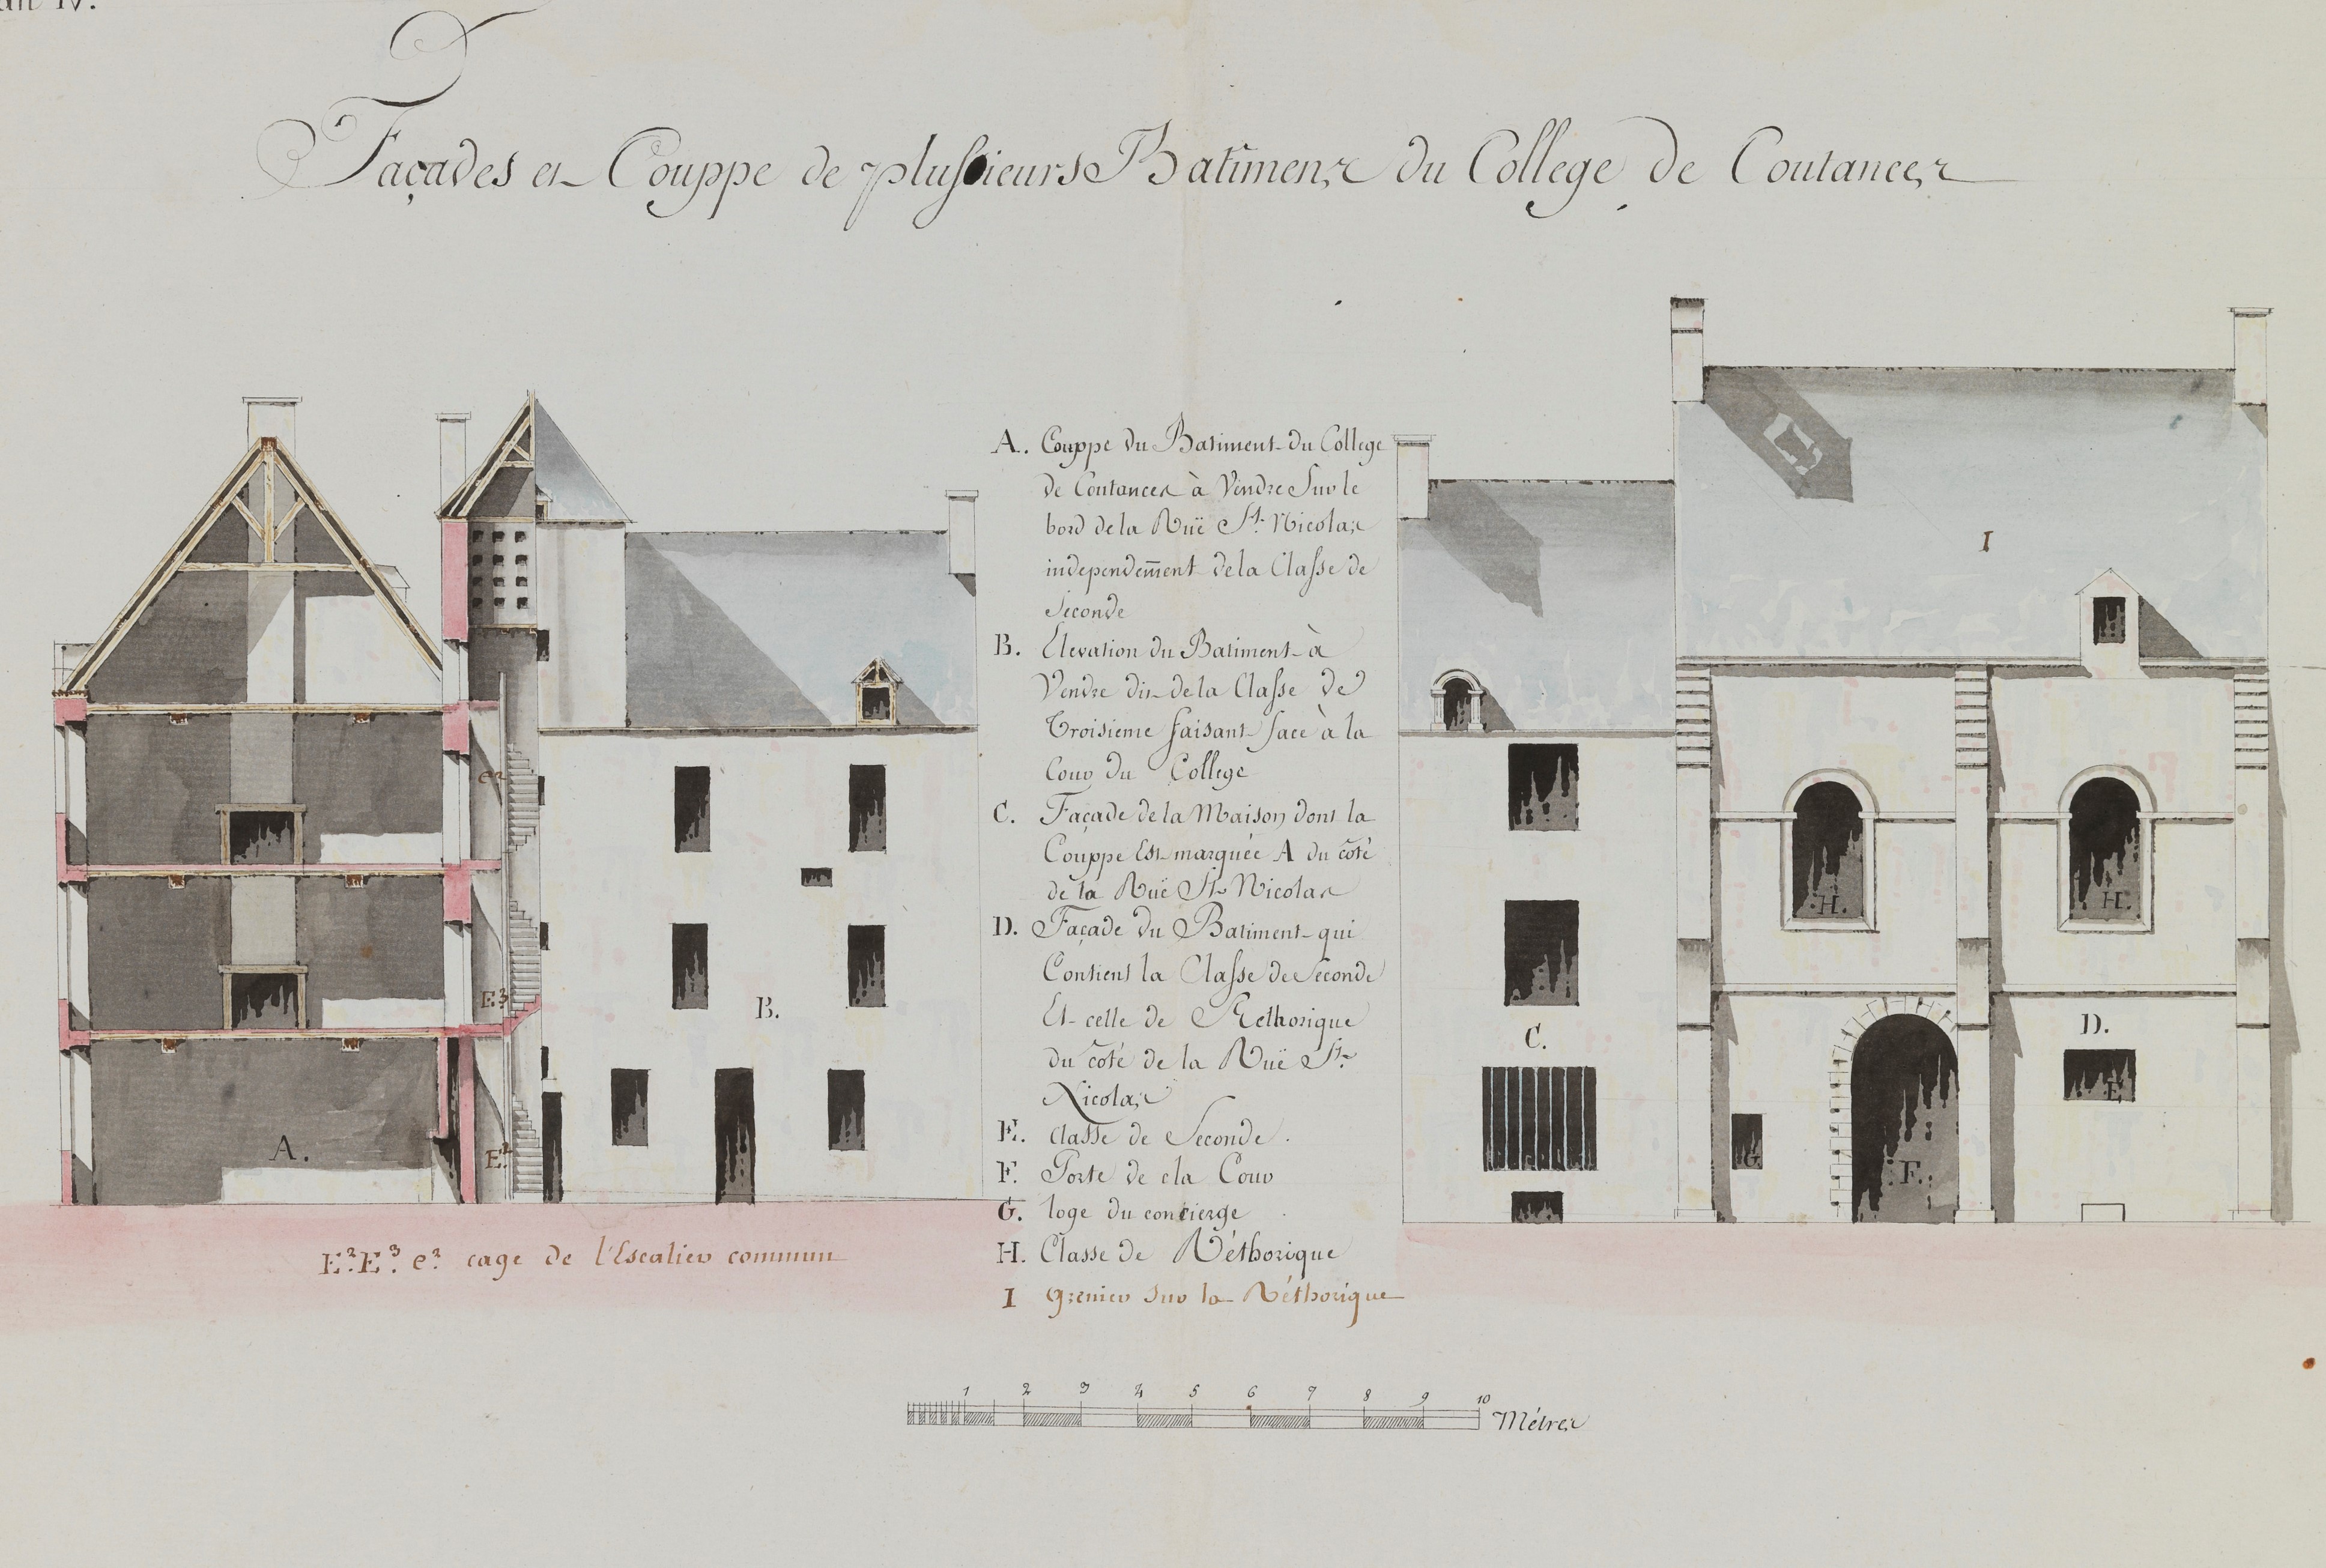 an IV.
Façades et Couppe de plusieurs Batimens du College de Coutances
A. Couppe du Batiment du College
de Coutances à Vendre Sur le
bord de la Ruë St. Nicolas
independem̄ent de la Classe de
Seconde
B. Elevation du Batiment à
Vendre dit de la Classe de
Troisieme faisant face à la
Cour du College
C. Façade de la Maison dont la
Couppe Est marquée A du coté
de la Ruë St. Nicolas
D. Façade du Batiment qui
Contient la Classe de Seconde
Et celle de Rethorique
du coté de la Ruë St.
Nicolas
E. Classe de Seconde.
F. Porte de la Cour
G. loge du concierge
H. Classe de Réthorique
I grenier sur la Réthorique
E². E³. e². cage de l'Escalier commun
A.
e²
E³
E²
B.
C.
D.
E
F.
G
H.
H.
I
1 2 3 4 5 6 7 8 9 10 Métres